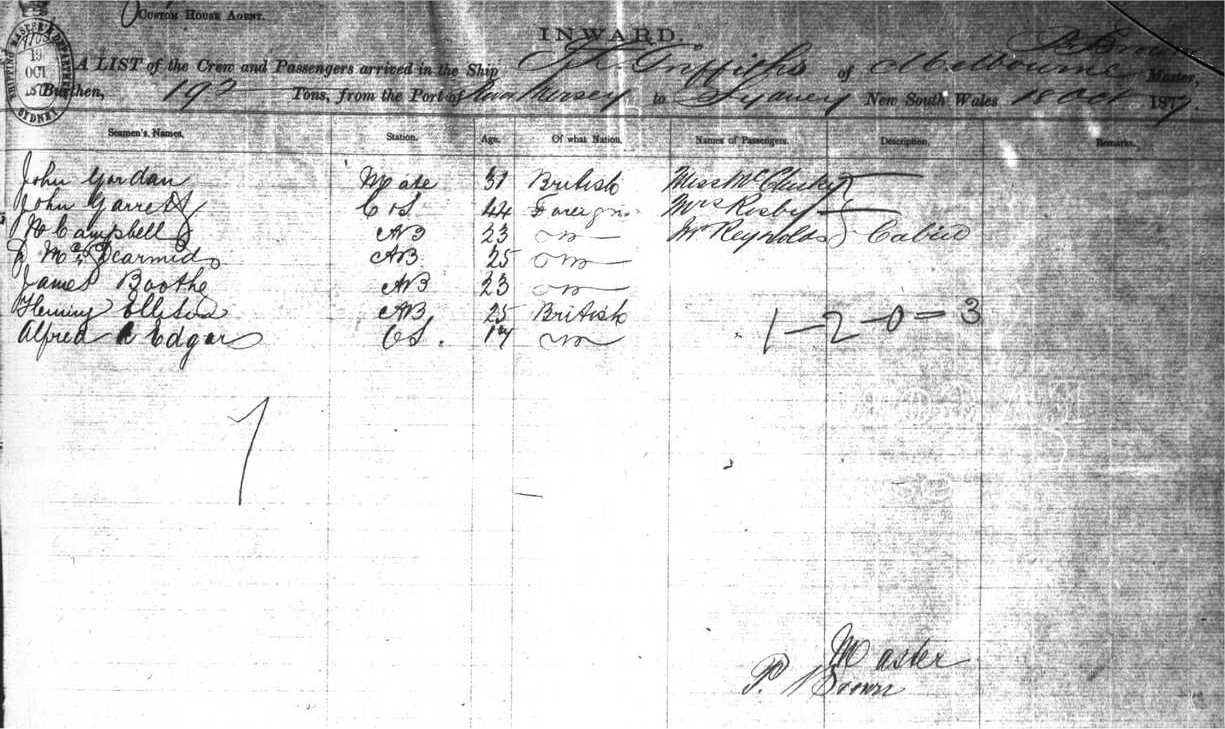 Custom House Agent.
INWARD.
SHIPPING MASTER'S DEPARTMENT 19 OCT SYDNEY
P. Brown
A LIST of the Crew and Passengers arrived in the Ship J L Griffiths of Melbourne Master,
Burthen, 192 Tons, from the Port of River Mersey to Sydney New South Wales 18 Oct 1877
Seamen's Names. Station. Age. Of what Nation. Names of Passengers. Description. Remarks.
John Gordan Mate 31 British Miss McClusky
John Garrett C & S. 44 Foreign Mrs Rosby
Campbell AB 23 Mr Reynolds Cabin
Mc Dearmid AB 25
James Boothe AB 23
Fleming Ellison AB 25 British
Alfred Edgar OS. 17
1 - 2 - 0 = 3
7
Master
P. Brown